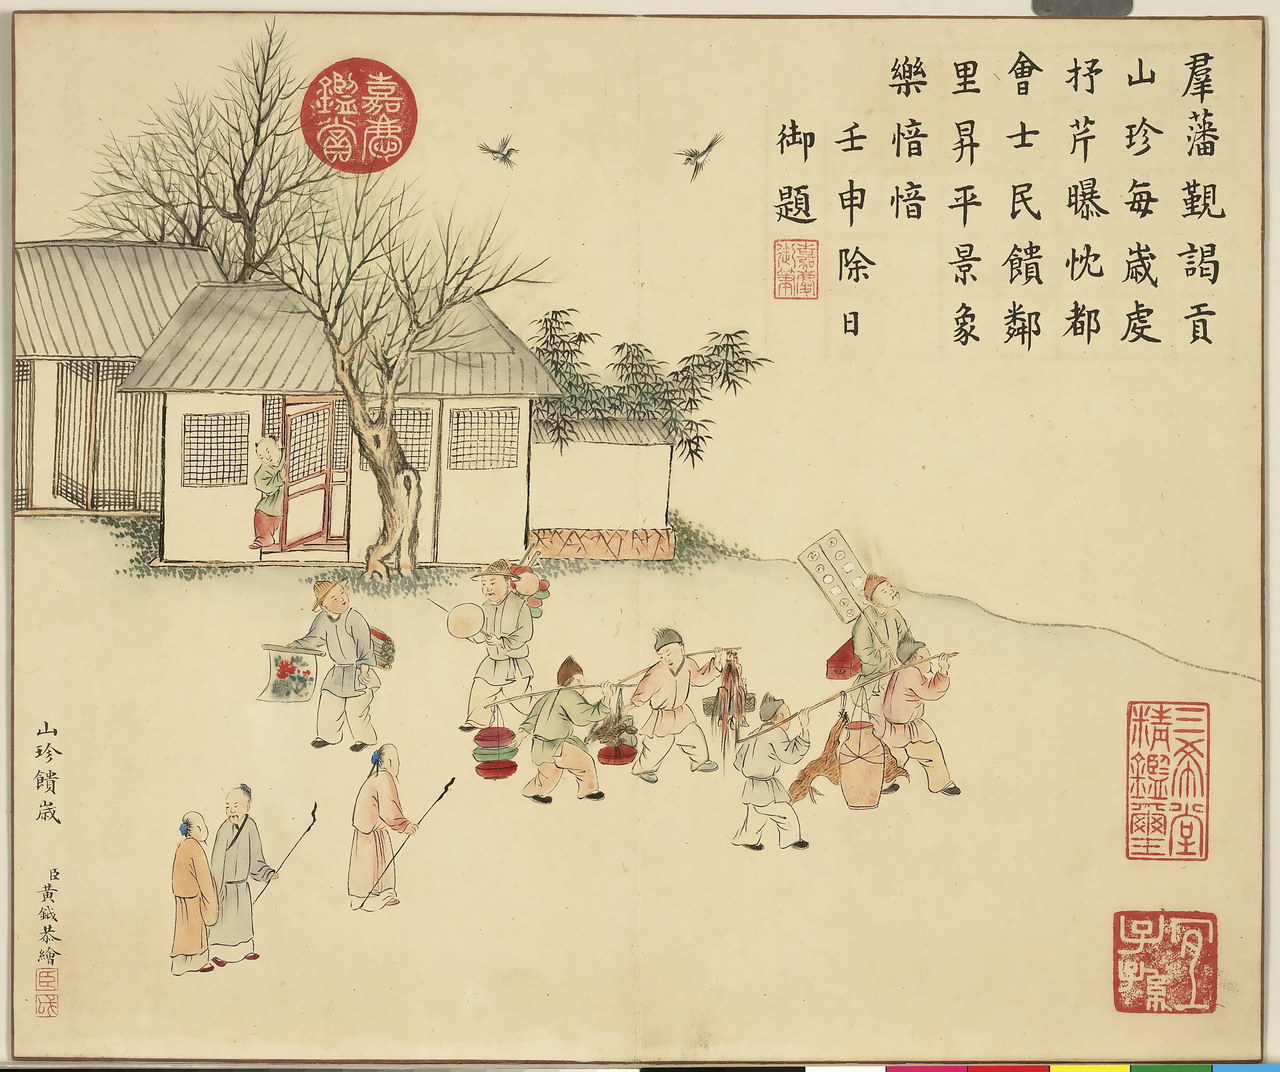 羣藩覲謁貢
山珍每歲處
抒芹曝忱都
會士民饋鄰
里昇平景象
樂愔愔
壬申除日
御題
嘉慶御筆
嘉慶鑑賞
三希堂精鑑璽
宜子孫
山珍饋歲
臣黃鉞恭繪
臣